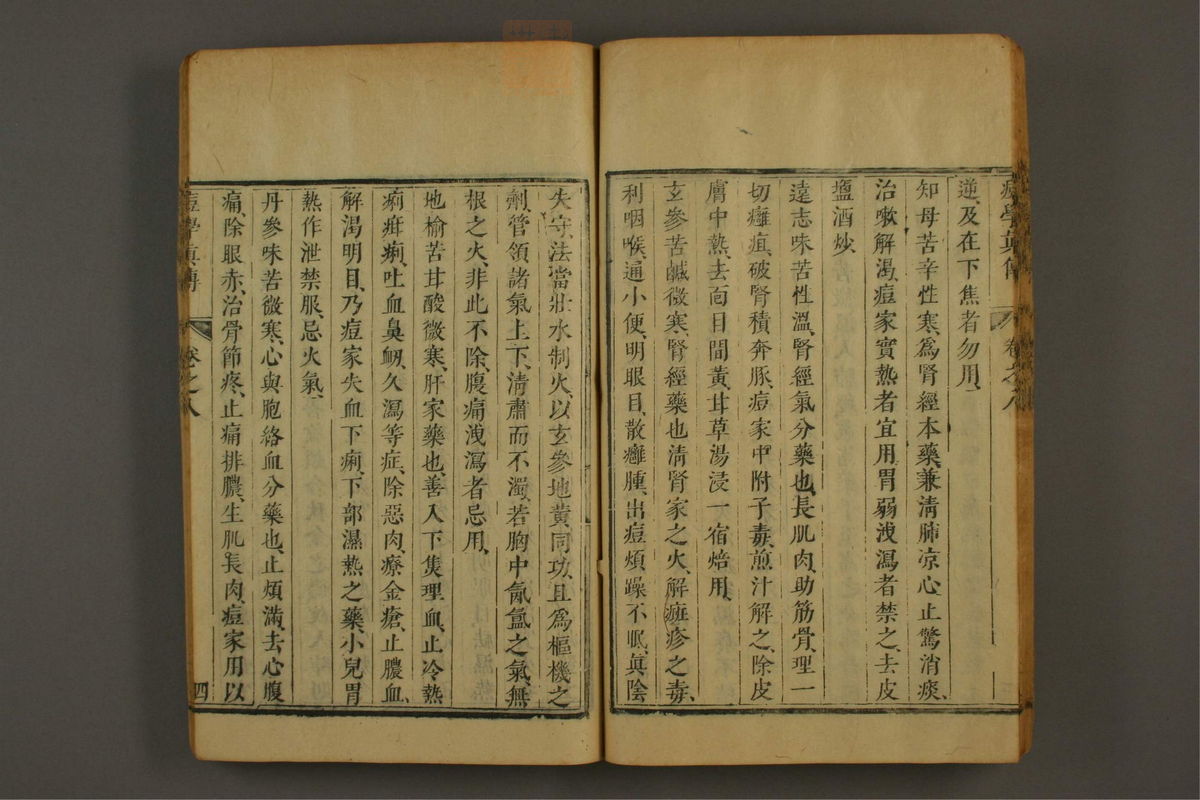 痘學真傳 卷之八
逆、及在下焦者勿用、
知母苦辛性寒、爲腎經本藥、兼淸肺凉心、止驚消痰、
治嗽解渴、痘家實熱者宜用、胃弱洩瀉者禁之、去皮
鹽酒炒、
遠志味苦性溫、腎經氣分藥也、長肌肉、助筋骨、理一
切癰疽、破腎積奔豚、痘家中附子毒、煎汁解之、除皮
膚中熱、去面目間黃、甘草湯浸一宿焙用、
玄參苦鹹微寒、腎經藥也、淸腎家之火、解斑疹之毒、
利咽喉、通小便、明眼目、散癰腫、出痘煩躁不眠、眞陰
失守、法當壯水制火、以玄參地黃同功、且爲樞機之
劑、管領諸氣上下、淸肅而不濁、若胸中氤氳之氣、無
根之火、非此不除、腹痛洩瀉者忌用、
地榆苦甘酸微寒、肝家藥也、善入下焦理血、止冷熱
痢疳痢、吐血鼻衂、久瀉等症、除惡肉、療金瘡、止膿血、
解渴明目、乃痘家失血下痢、下部濕熱之藥、小兒胃
熱作泄禁服、忌火氣、
丹參味苦微寒、心與胞絡血分藥也、止煩滿、去心腹
痛、除眼赤、治骨節疼、止痛排膿、生肌長肉、痘家用以
痘學真傳 卷之八 四